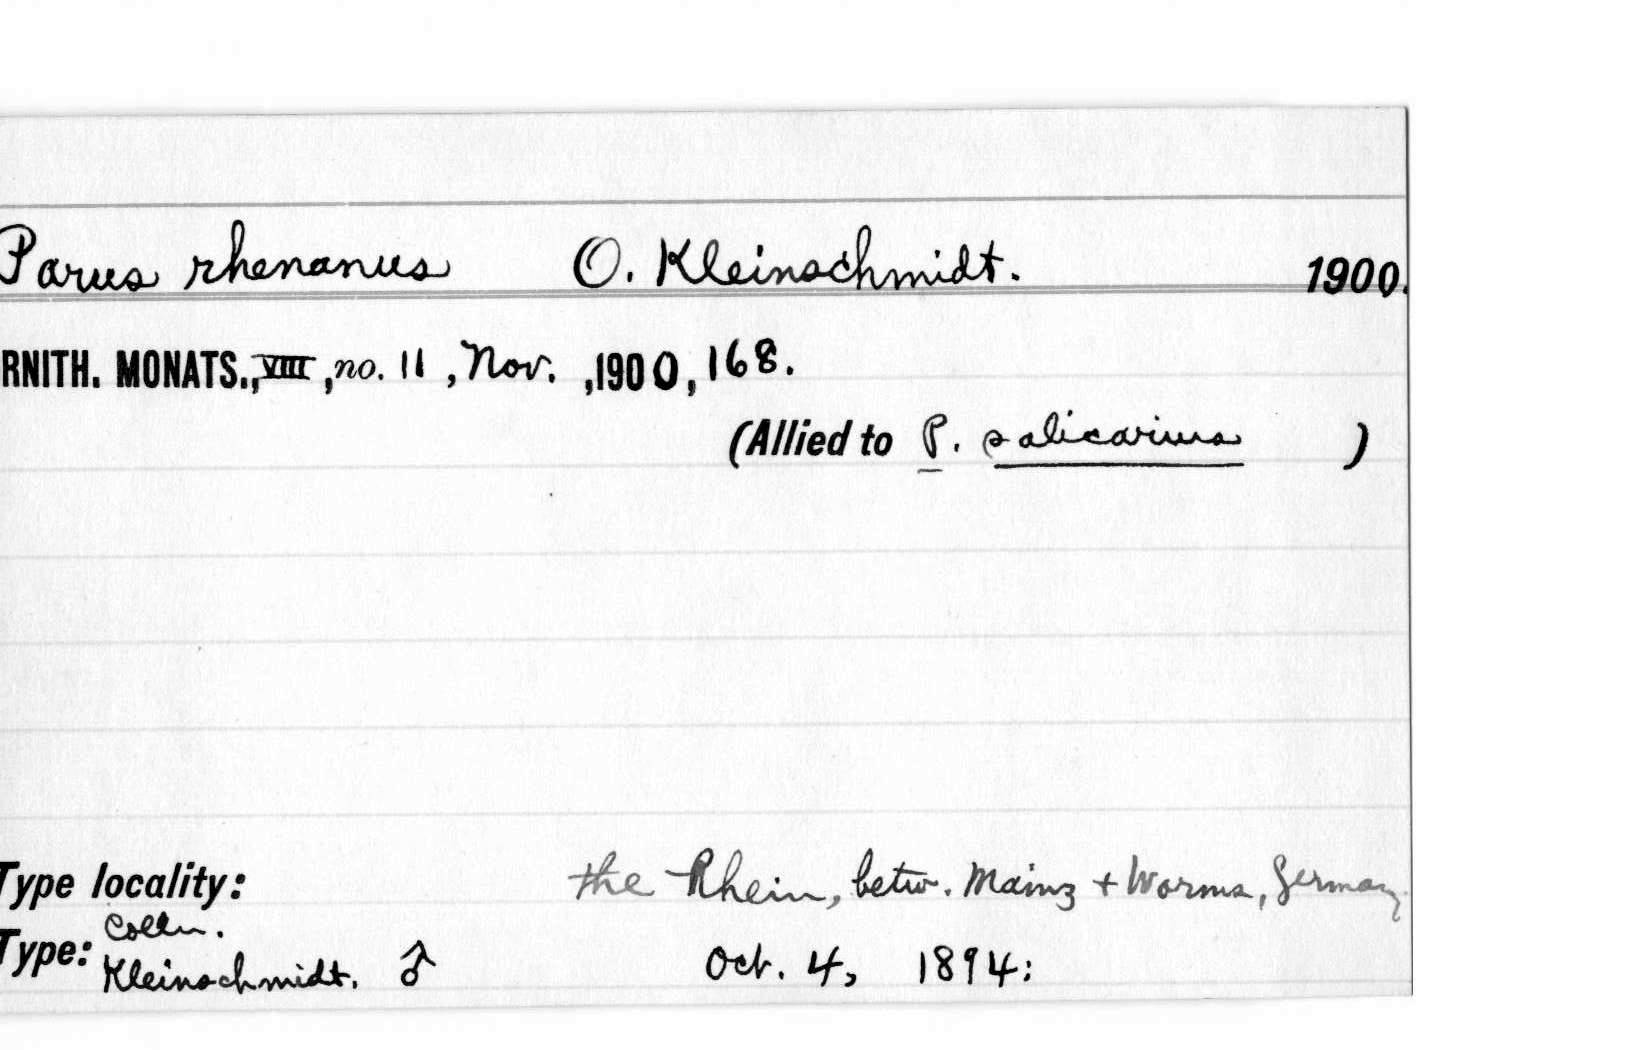 Parus rhenanus O. Kleinschmidt. 1900.
RNITH. MONATS., VIII, no. 11, Nov., 1900, 168.
(Allied to P. salicarius)
Type locality: the Rhein, betw. Mainz + Worms, Germany.
Colln.
Type: Kleinschmidt. ♂ Oct. 4, 1894: